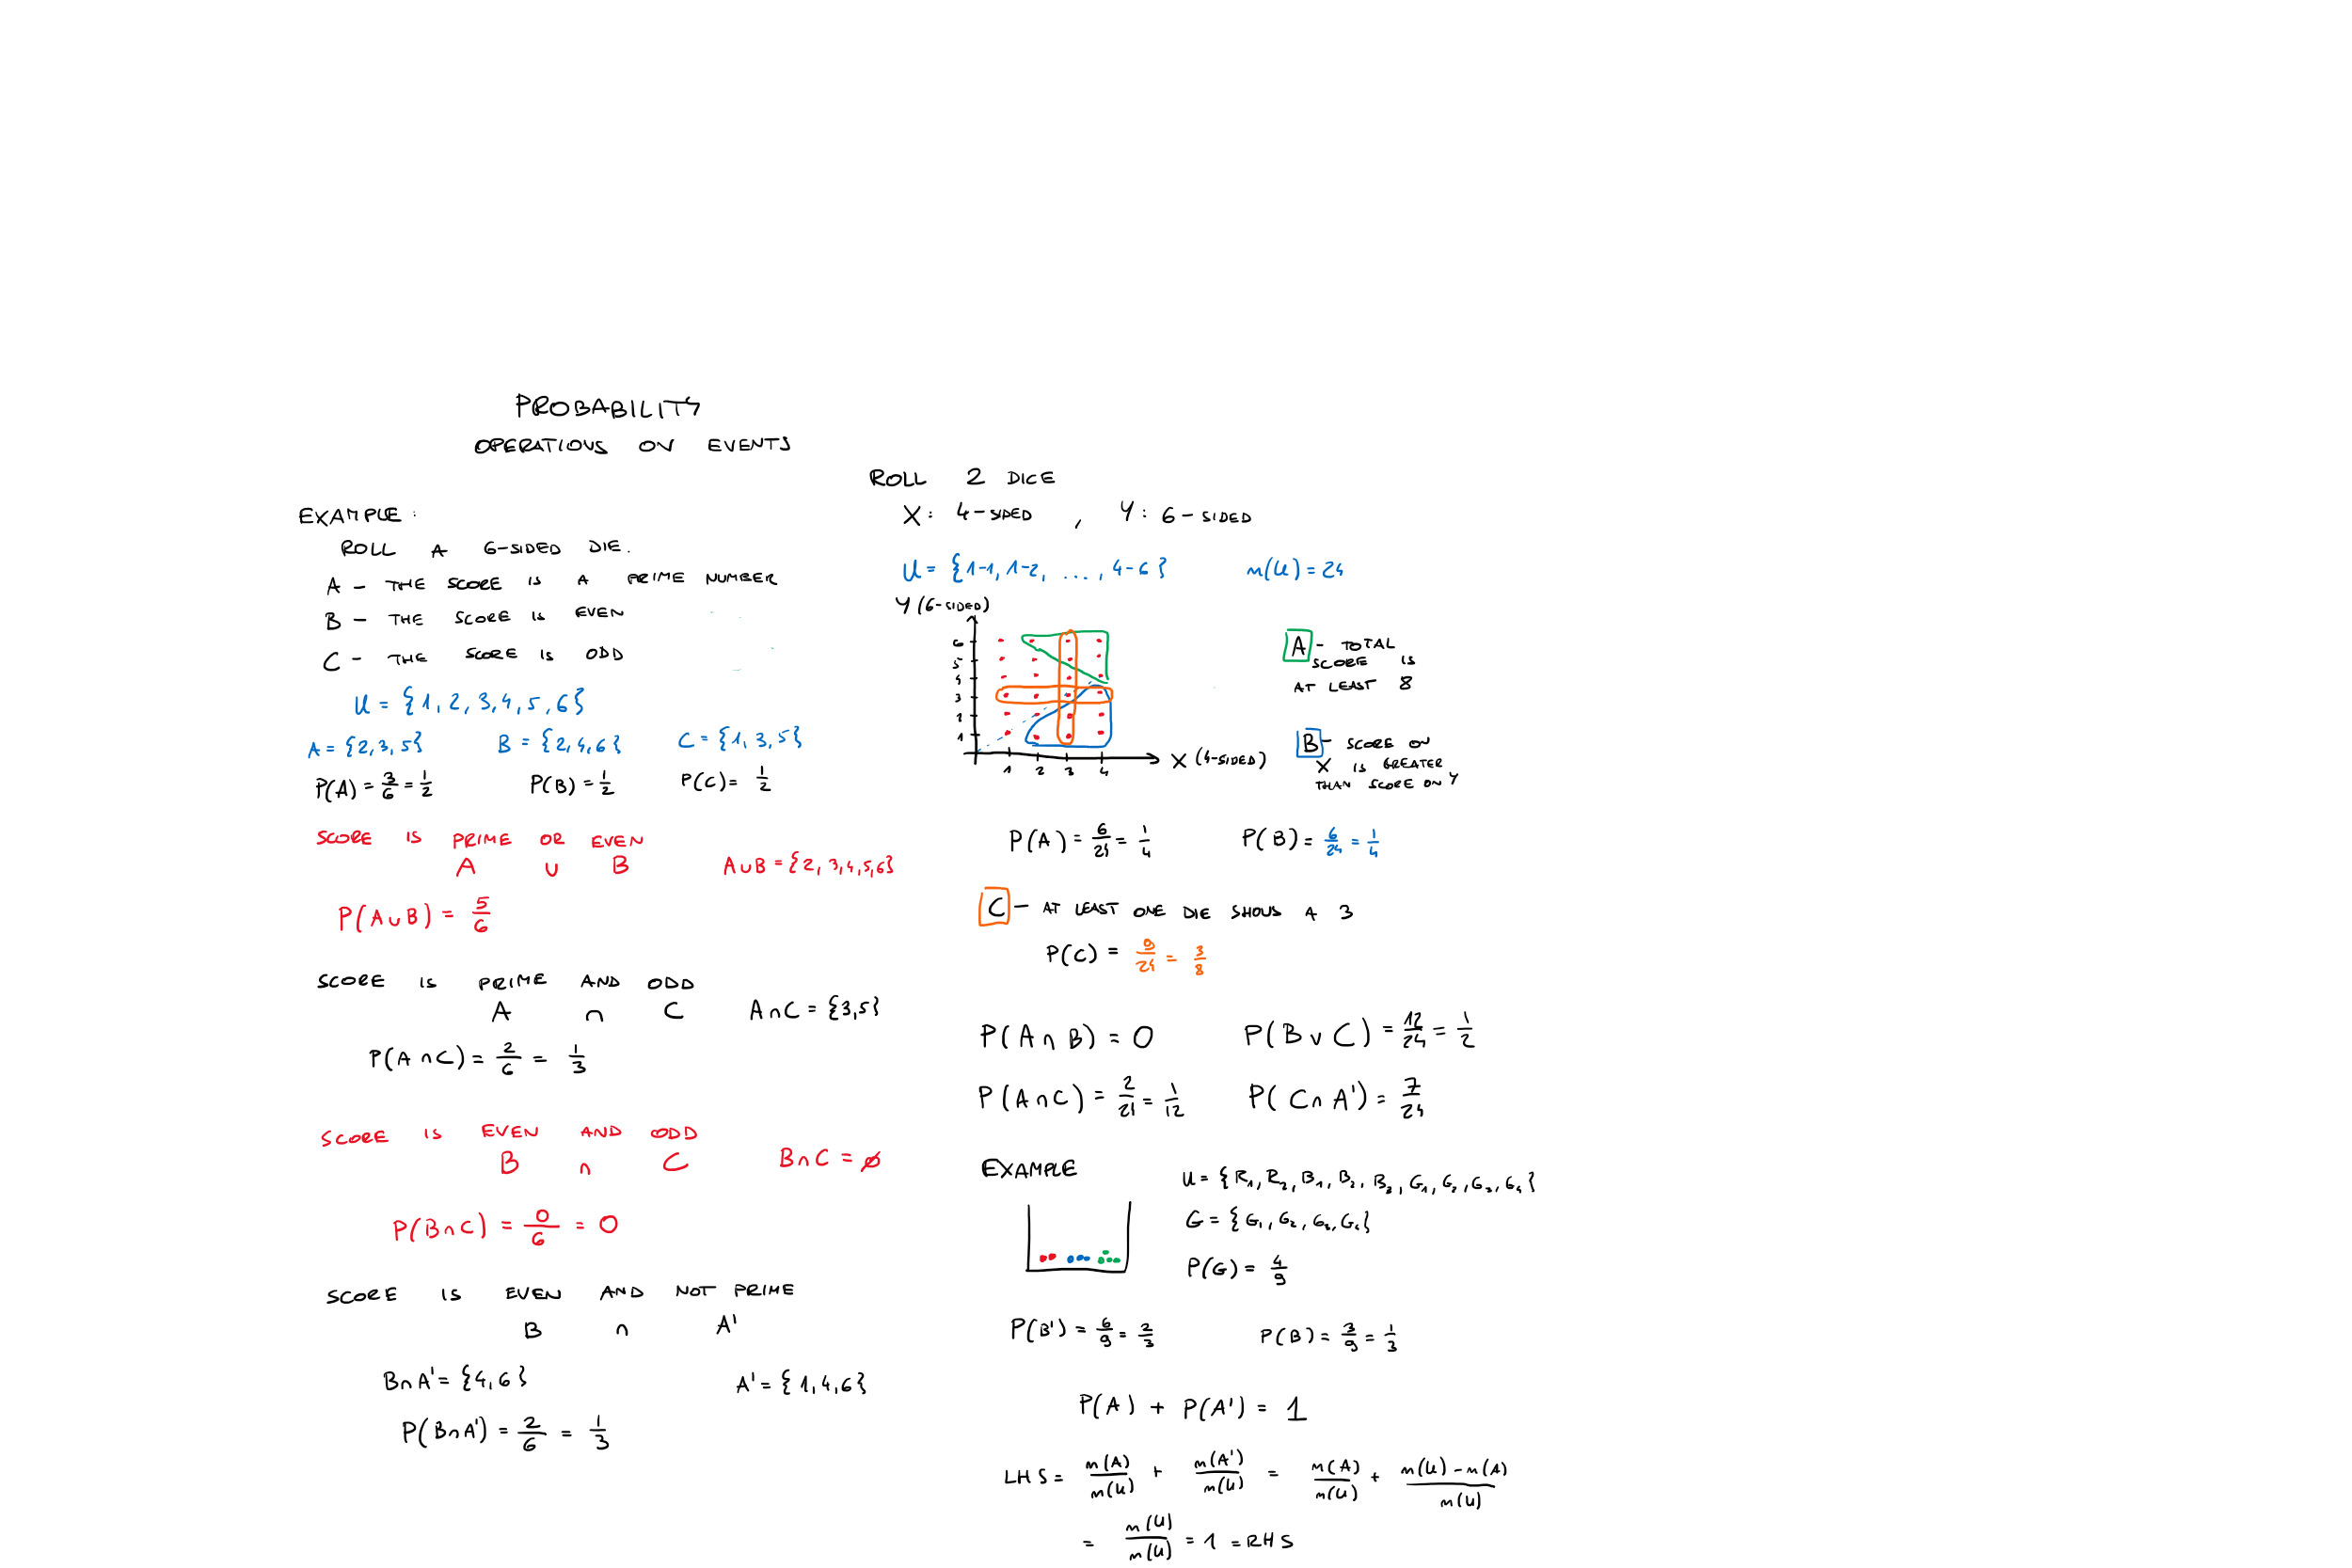 PROBABILITY
OPERATIONS ON EVENTS
EXAMPLE:
ROLL A 6-SIDED DIE.
A - THE SCORE IS A PRIME NUMBER
B - THE SCORE IS EVEN
C - THE SCORE IS ODD
U = {1, 2, 3, 4, 5, 6}
A = {2, 3, 5} B = {2, 4, 6} C = {1, 3, 5}
P(A) = 3/6 = 1/2 P(B) = 1/2 P(C) = 1/2
SCORE IS PRIME OR EVEN
A ∪ B A∪B = {2, 3, 4, 5, 6}
P(A∪B) = 5/6
SCORE IS PRIME AND ODD
A ∩ C A∩C = {3, 5}
P(A∩C) = 2/6 = 1/3
SCORE IS EVEN AND ODD
B ∩ C B∩C = ∅
P(B∩C) = 0/6 = 0
SCORE IS EVEN AND NOT PRIME
B ∩ A'
B∩A' = {4, 6} A' = {1, 4, 6}
P(B∩A') = 2/6 = 1/3
ROLL 2 DICE
X: 4-SIDED , Y: 6-SIDED
U = {1-1, 1-2, ..., 4-6} n(U) = 24
Y (6-SIDED)
6
5
4
3
2
1
1 2 3 4
X (4-SIDED)
A - TOTAL
SCORE IS
AT LEAST 8
B - SCORE ON
X IS GREATER
THAN SCORE ON Y
P(A) = 6/24 = 1/4 P(B) = 6/24 = 1/4
C - AT LEAST ONE DIE SHOWS A 3
P(C) = 9/24 = 3/8
P(A∩B) = 0 P(B∪C) = 12/24 = 1/2
P(A∩C) = 2/24 = 1/12 P(C∩A') = 7/24
EXAMPLE
U = {R₁, R₂, B₁, B₂, B₃, G₁, G₂, G₃, G₄}
G = {G₁, G₂, G₃, G₄}
P(G) = 4/9
P(B') = 6/9 = 2/3 P(B) = 3/9 = 1/3
P(A) + P(A') = 1
LHS = n(A)/n(U) + n(A')/n(U) = n(A)/n(U) + (n(U) - n(A))/n(U)
= n(U)/n(U) = 1 = RHS